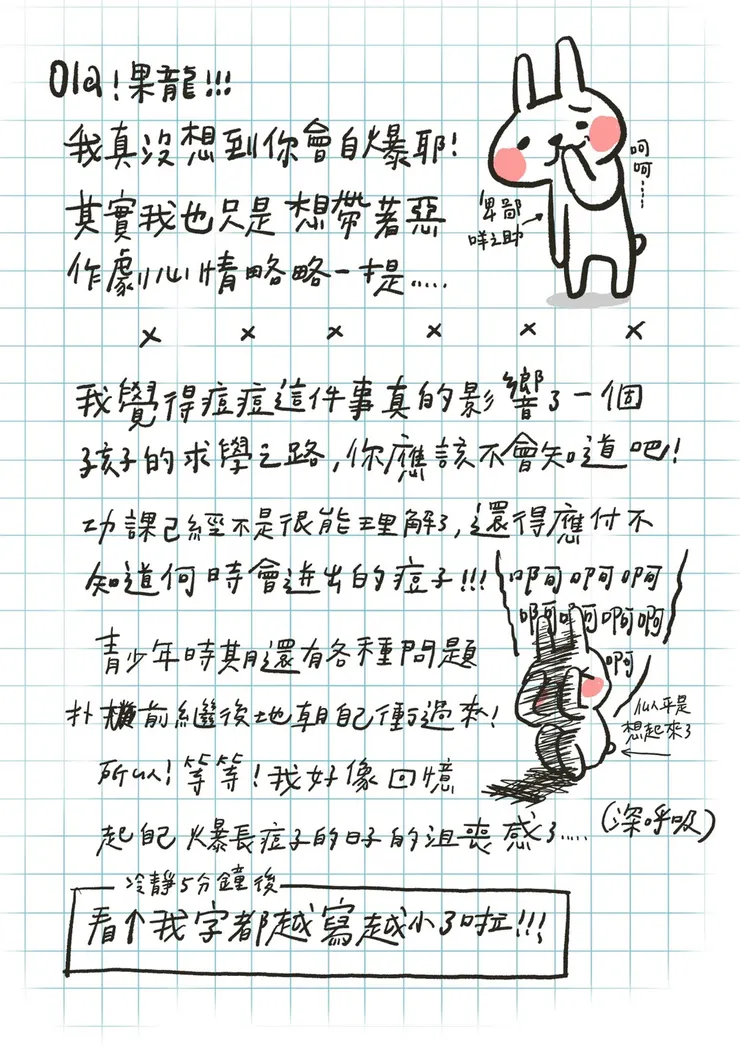 Ola!果龍!!!
我真沒想到你會自爆耶!
其實我也只是想帶著惡
作劇心情略略一提.....
呵呵......
卑鄙
咩之助
× × × × × ×
我覺得痘痘這件事真的影響了一個
孩子的求學之路,你應該不會知道吧!
功課已經不是很能理解了,還得應付不
知道何時會迸出的痘子!!!
啊啊啊
啊啊啊啊
啊
青少年時期還有各種問題
扑前繼後地朝自己衝過來!
似乎是
想起來了
所以!等等!我好像回憶
起自己爆長痘子的日子的沮喪感了.....
(深呼吸)
冷靜5分鐘後
看↑我字都越寫越小了啦!!!